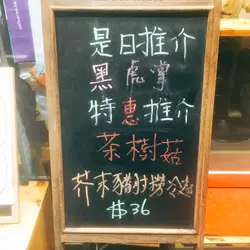 是日推介
黑虎掌
特惠推介
茶樹菇
芥末豬肘撈冷麵
$36